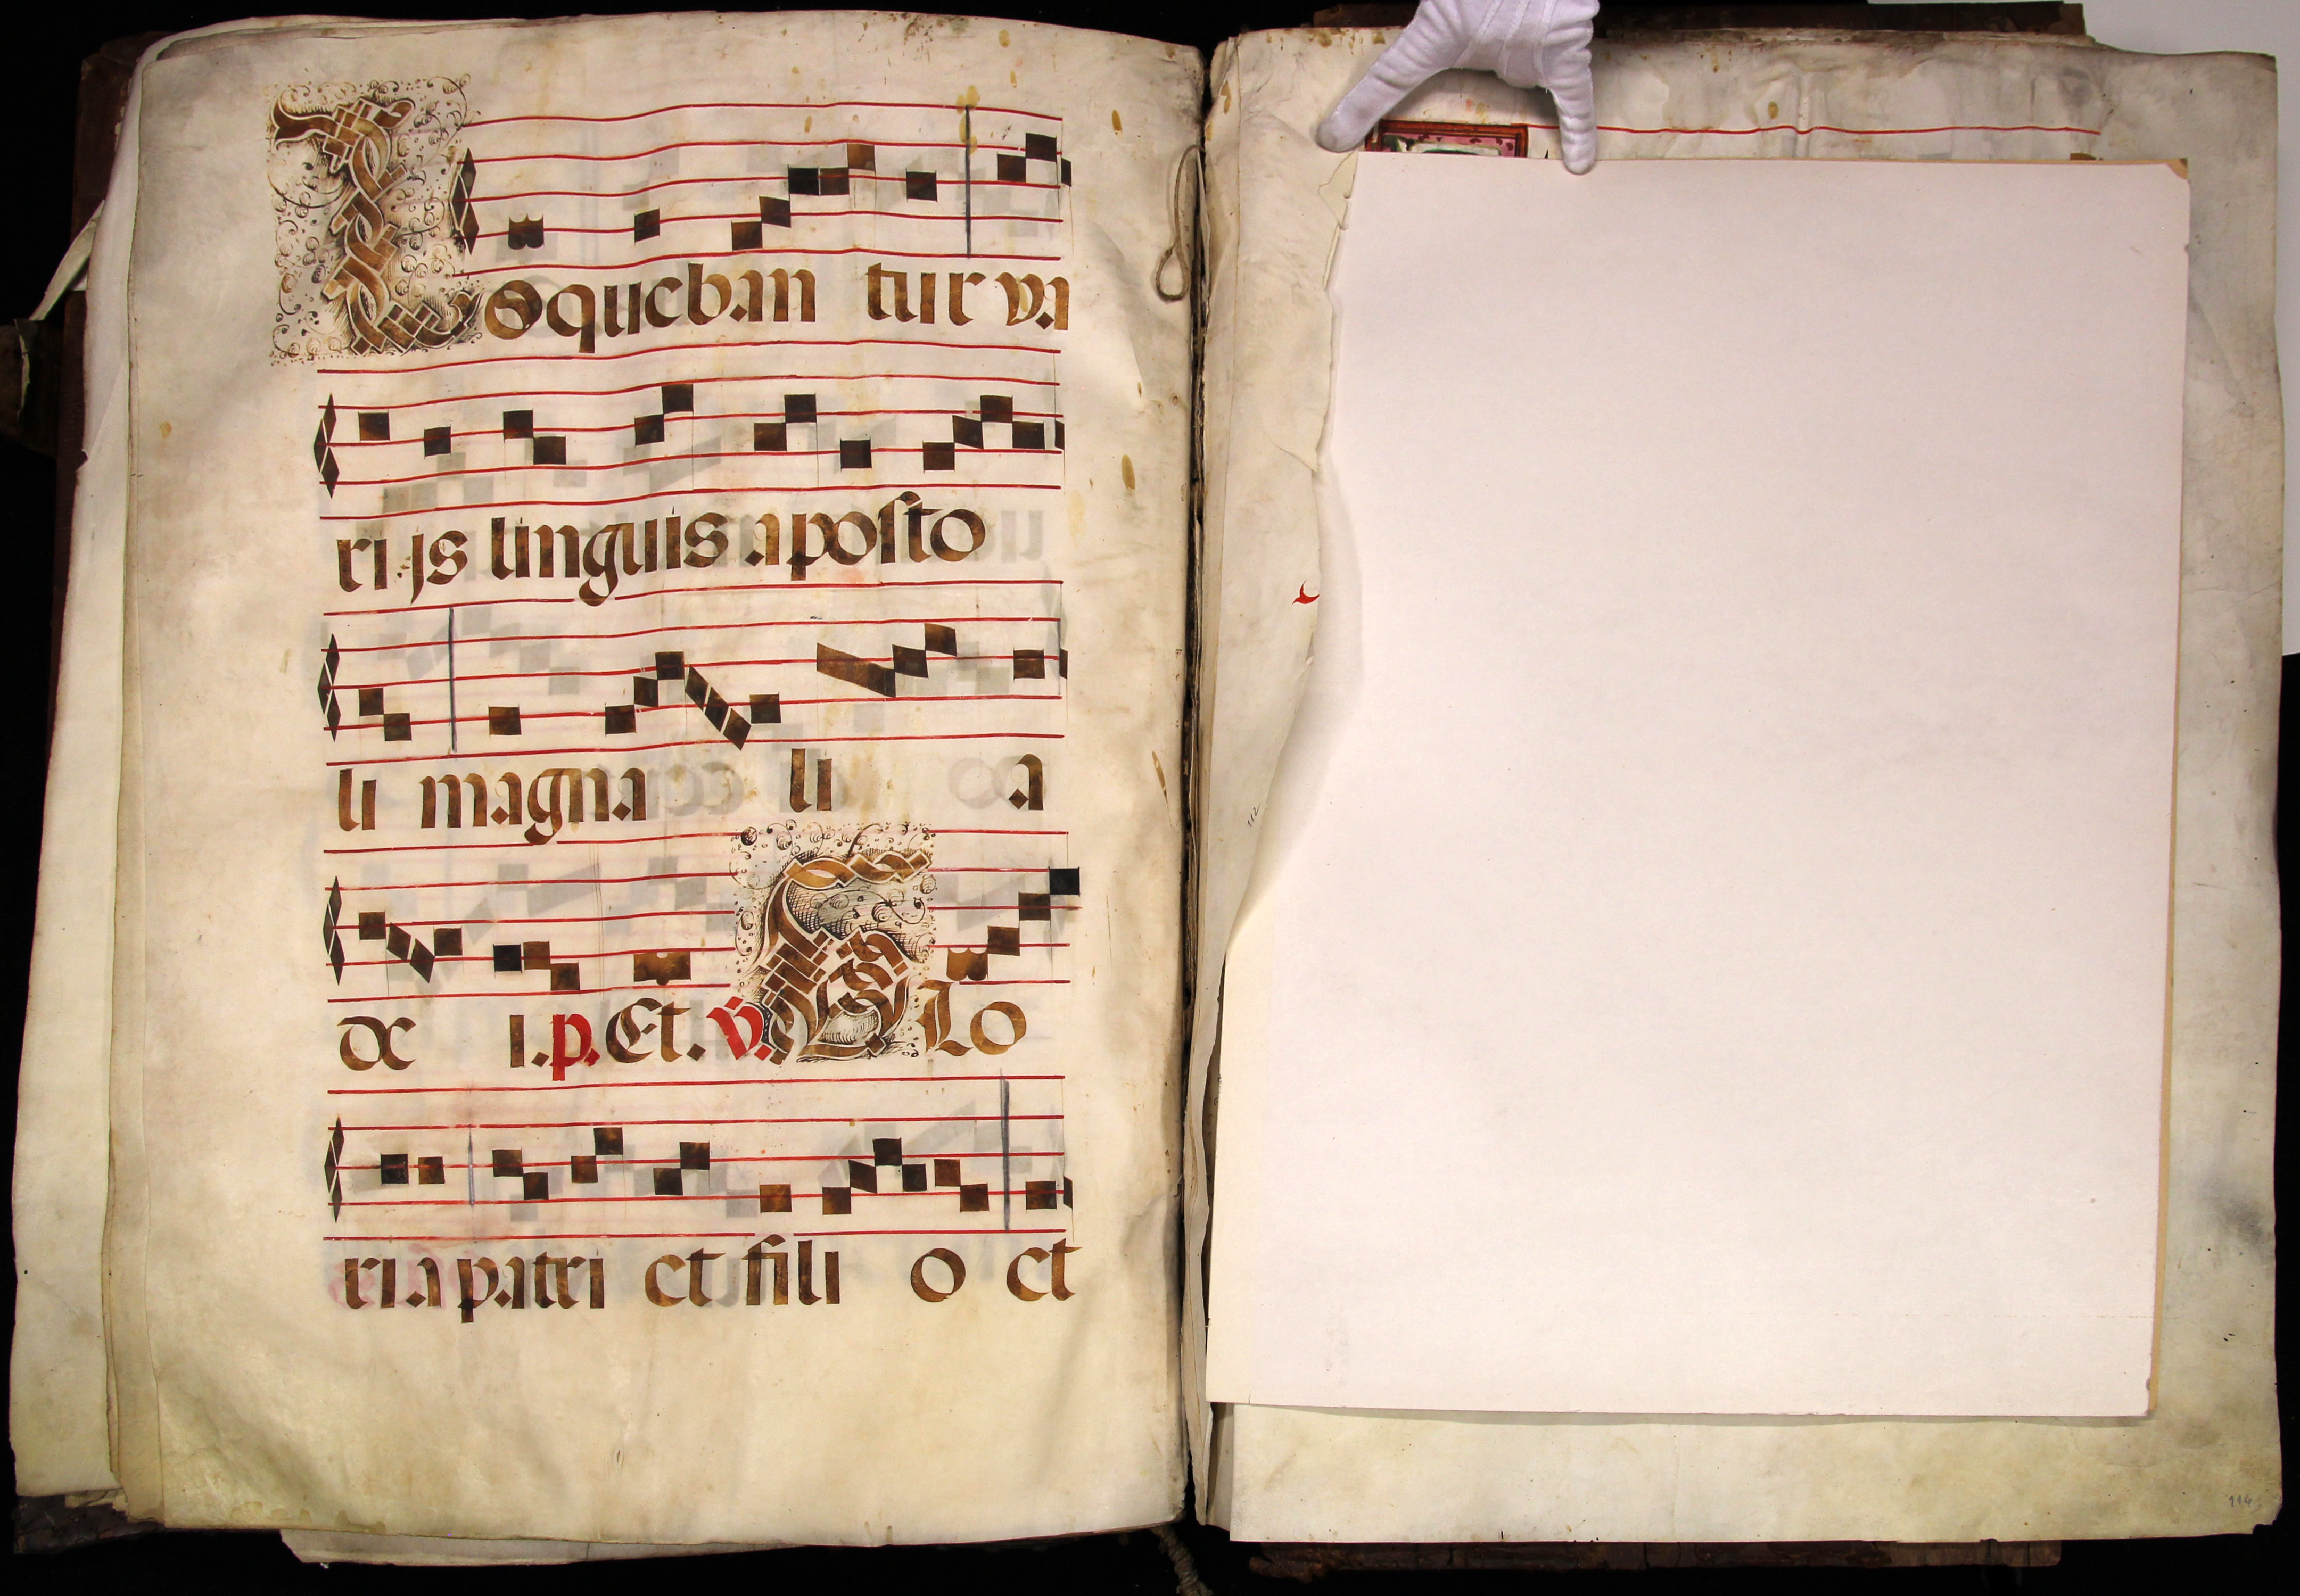 Loqueban tur va
rijs linguis aposto
li magna li a
de i. p. Et. v. Glo
ria patri et fili o et
112
114